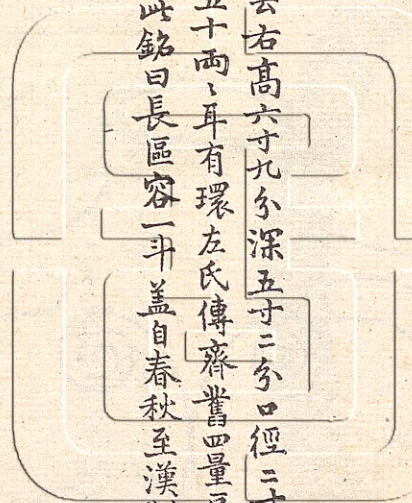 云右高六寸九分深五寸二分口徑二寸
五十兩〻耳有環左氏傳齊舊四量
此銘曰長區容一斗蓋自春秋至漢